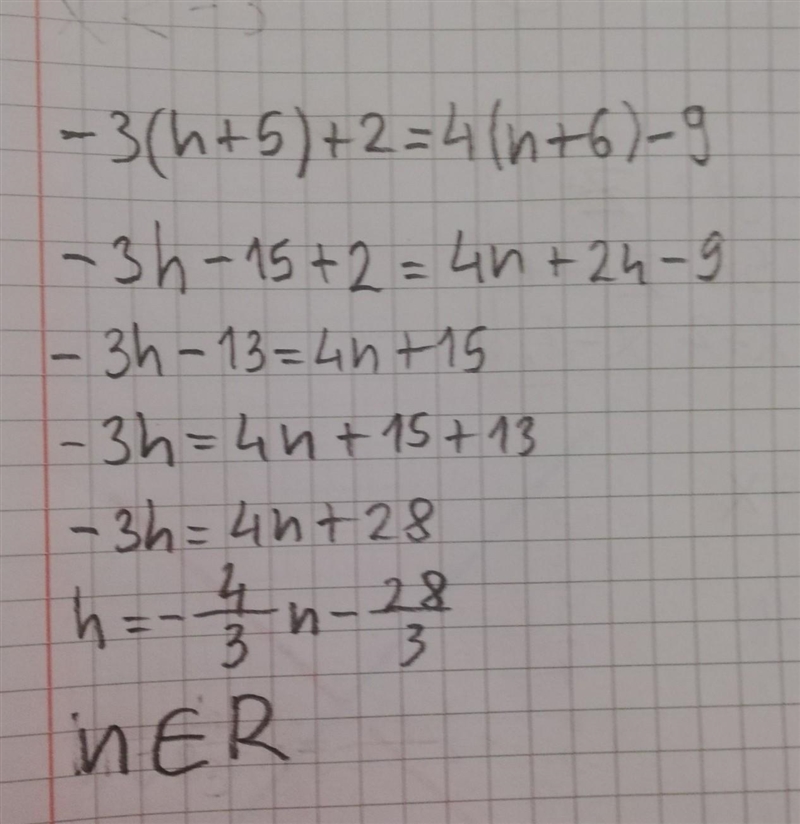 -3(h+5)+2=4(n+6)-9
-3h-15+2=4n+24-9
-3h-13=4n+15
-3h=4n+15+13
-3h=4n+28
h=-4/3 n-28/3
n∈R